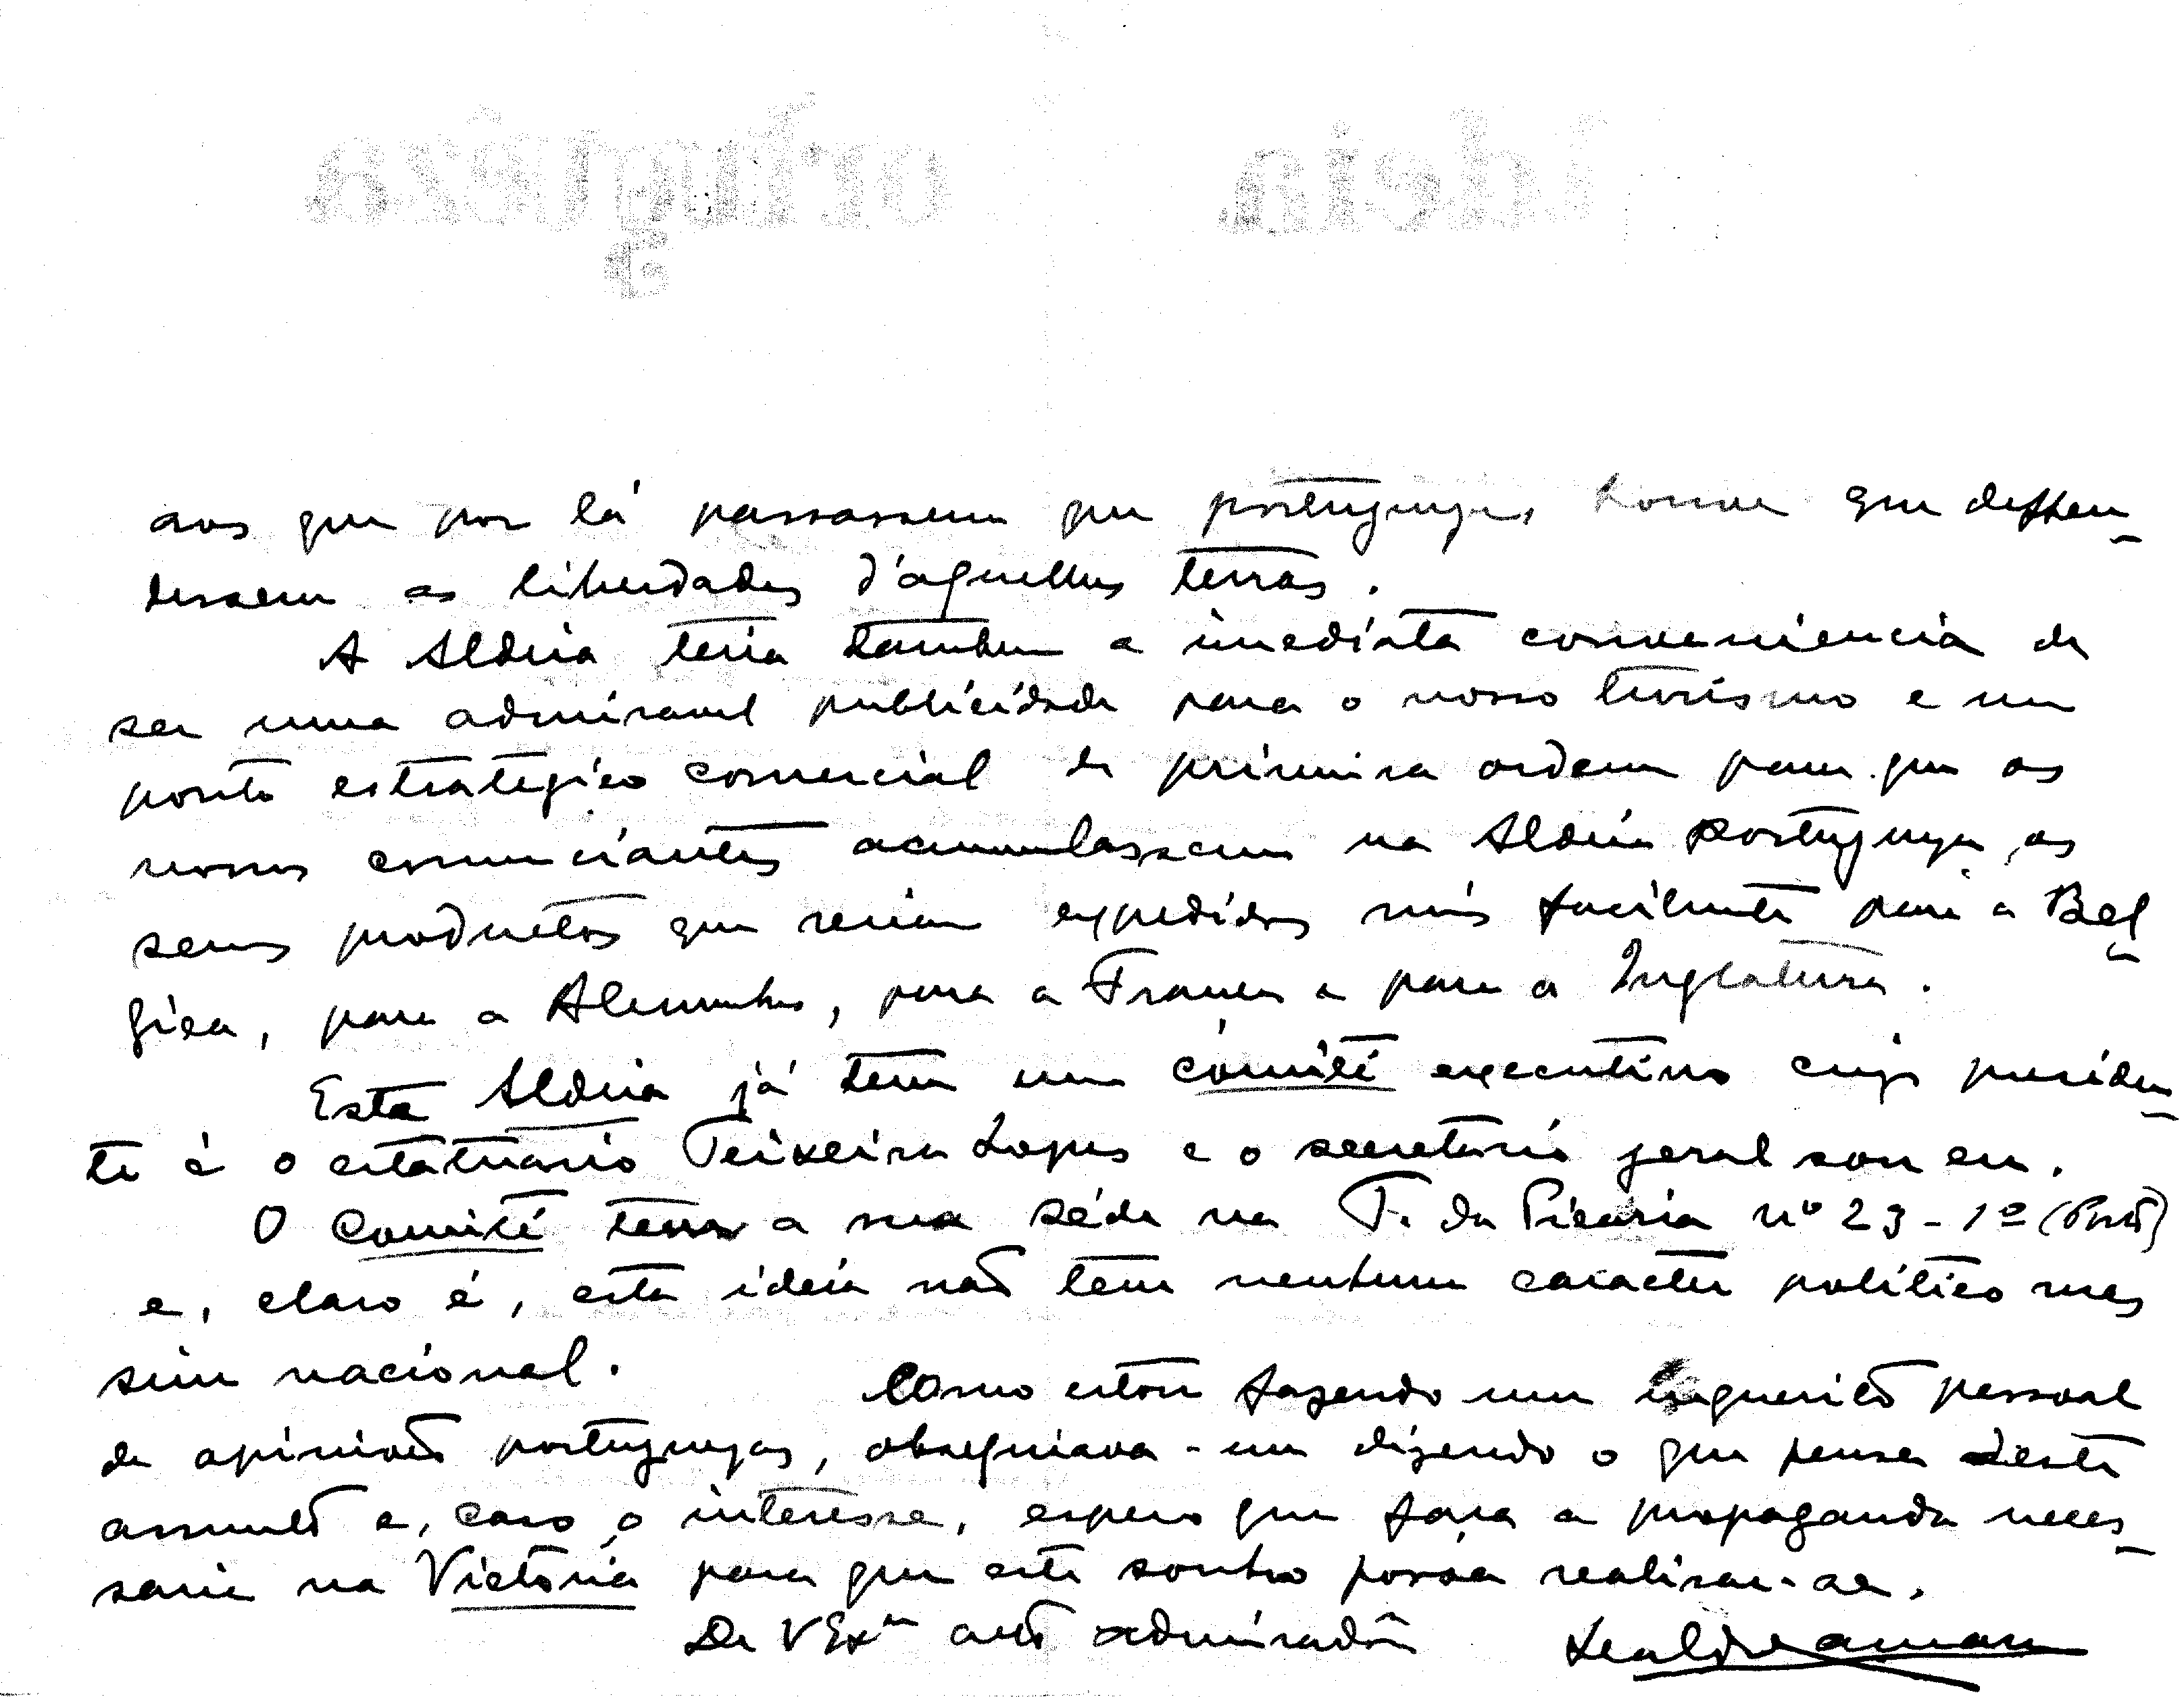 aos que por lá passassem que portuguezes houve que deffen-
dessem as liberdades d'aquellas terras.
A Aldeia teria tambem a imediata conveniencia de
ser uma admiravel publicidade para o nosso turismo e um
ponto estrategico comercial de primeira ordem para que os
nossos comerciantes acumulassem na Aldeia Portugueza, os
seus productos que seriam expedidos mais facilmente para a Bel-
gica, para a Alemanha, para a França e para a Inglaterra.
Esta Aldeia já tem um comité executivo cujo presiden-
te é o estatuario Teixeira Lopes e o secretario geral sou eu.
O Comité tem a sua séde na T. da Picaria nº 23-1º (Porto)
e, claro é, esta ideia não tem nenhum caracter politico mas
sim nacional.
Como estou fazendo um inquerito pessoal
de opiniões portuguezas, obsequiava-me dizendo o que pensa deste
assunto e, caso o interesse, espero que faça a propaganda neces-
saria na Victoria para que este sonho possa realisar-se.
De V Exª admirador Leal da Camara
ldeia ortugueza